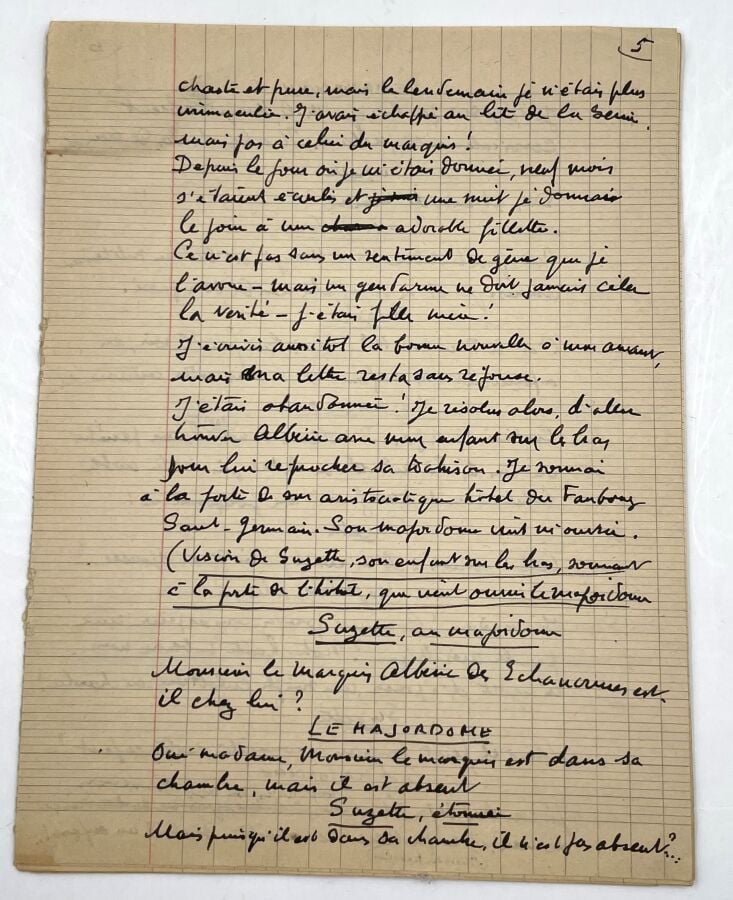 5
chaste et pure, mais le lendemain je n'étais plus
immaculée. J'avais échappé au lit de la Seine,
mais pas à celui du marquis !
Depuis le jour où je m'étais donnée, neuf mois
s'étaient écoulés et une nuit je donnais
le jour à une adorable fillette.
Ce n'est pas sans un sentiment de gêne que je
l'avoue - mais un gendarme ne doit jamais céler
la vérité - j'étais fille mère !
J'écrivis aussitôt la bonne nouvelle à mon amant,
mais ma lettre resta sans réponse.
J'étais abandonnée ! Je résolus alors, d'aller
trouver Albéric avec mon enfant sur les bras
pour lui reprocher sa trahison. Je sonnai
à la porte de son aristocratique hôtel du Faubourg
Saint-Germain. Son majordome vint m'ouvrir.
(Vision de Suzette, son enfant sur les bras, sonnant
à la porte de l'hôtel, que vient ouvrir le majordome
Suzette, au majordome
Monsieur le marquis Albéric des est-
il chez lui ?
LE MAJORDOME
Oui madame, Monsieur le marquis est dans sa
chambre, mais il est absent
Suzette, étonnée
Mais puisqu'il est dans sa chambre, il n'est pas absent ?...